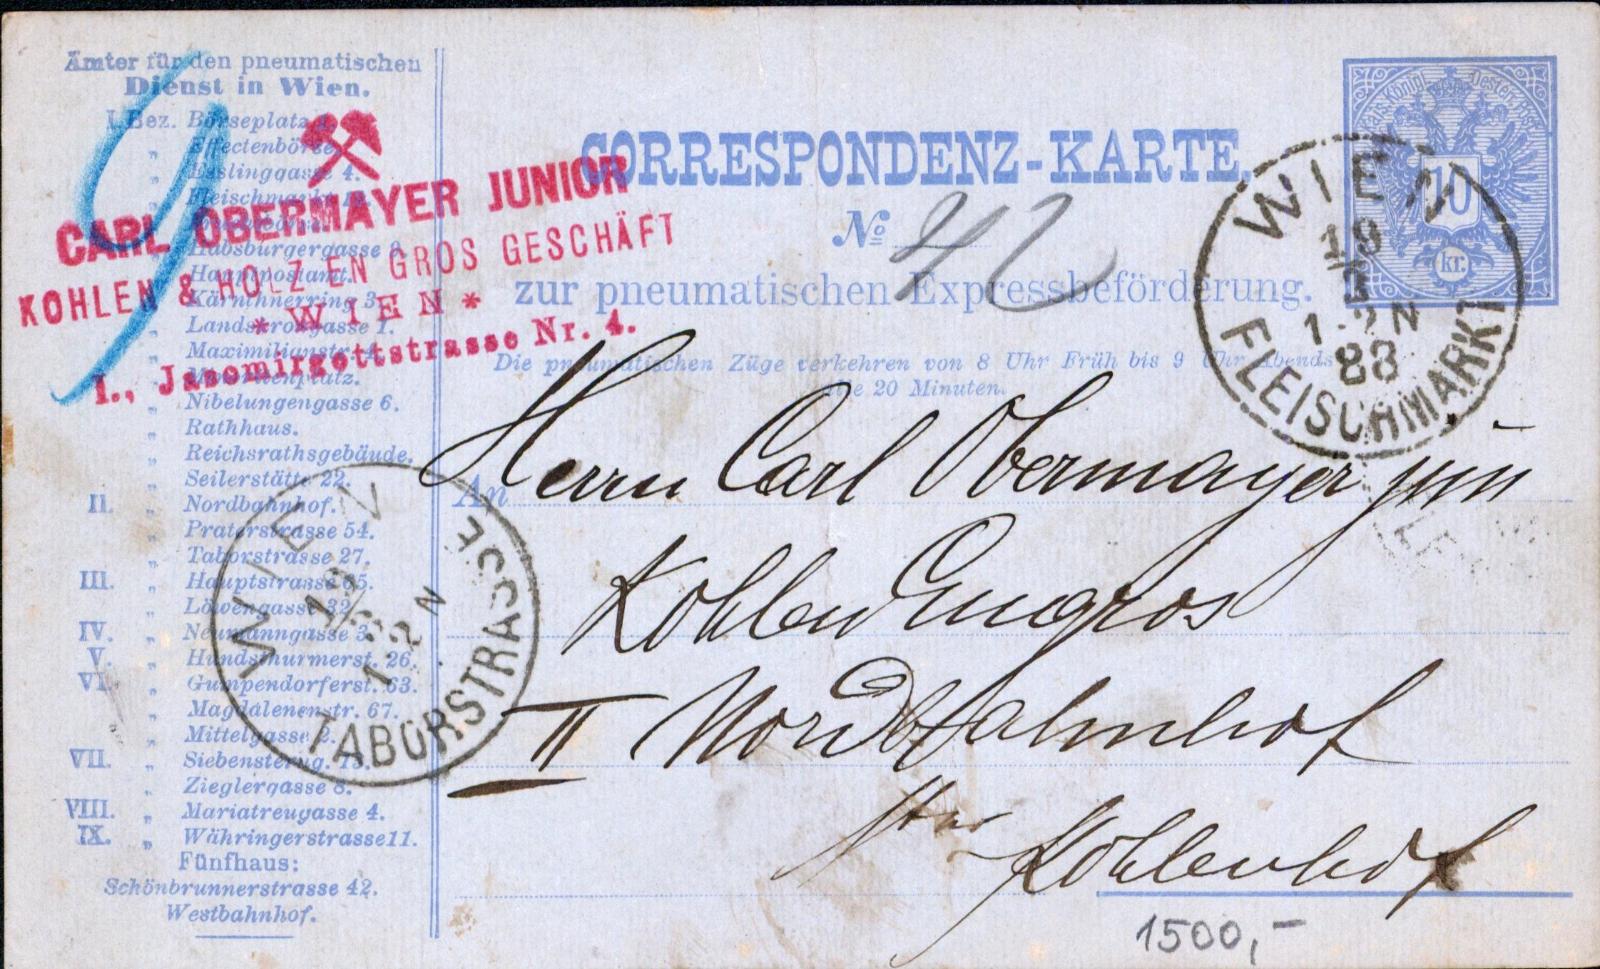 Ämter für den pneumatischen
Dienst in Wien.
I. Bez. Börseplatz 1.
„ Effectenbörse
„ Esslinggasse 4.
„ Fleischmarkt
„ Habsburgergasse 9.
„ Hauptpostamt.
„ Kärnthnerring 3.
„ Landskrongasse 1.
„ Maximilianstr. 4.
„ Minoritenplatz.
„ Nibelungengasse 6.
„ Rathhaus.
„ Reichsrathsgebäude.
„ Seilerstätte 22.
II. „ Nordbahnhof.
„ Praterstrasse 54.
„ Taborstrasse 27.
III. „ Hauptstrasse 65.
„ Löwengasse 32
IV. „ Neumanngasse 3.
V. „ Hundsthurmerst. 26.
VI. „ Gumpendorferst. 63.
„ Magdalenenstr. 67.
„ Mittelgasse 2.
VII. „ Siebensterng. 13.
„ Zieglergasse 8.
VIII. „ Mariatreugasse 4.
IX. „ Währingerstrasse 11.
Fünfhaus:
Schönbrunnerstrasse 42.
Westbahnhof.
9
CARL OBERMAYER JUNIOR
KOHLEN & HOLZ EN GROS GESCHÄFT
* WIEN *
I., Jasomirgottstrasse Nr. 4.
CORRESPONDENZ-KARTE.
No 42
zur pneumatischen Expressbeförderung.
Die pneumatischen Züge verkehren von 8 Uhr Früh bis 9 Uhr Abends
alle 20 Minuten.
Kais. Königl. Oesterr. Post
10
kr.
WIEN
19
5
1-2 N
88
FLEISCHMARKT
WIEN
19
5
1-2 N
TABORSTRASSE
An Herrn Carl Obermayer jun
Kohlen Engros
II Nordbahnhof
Kohlenhof
1500,-